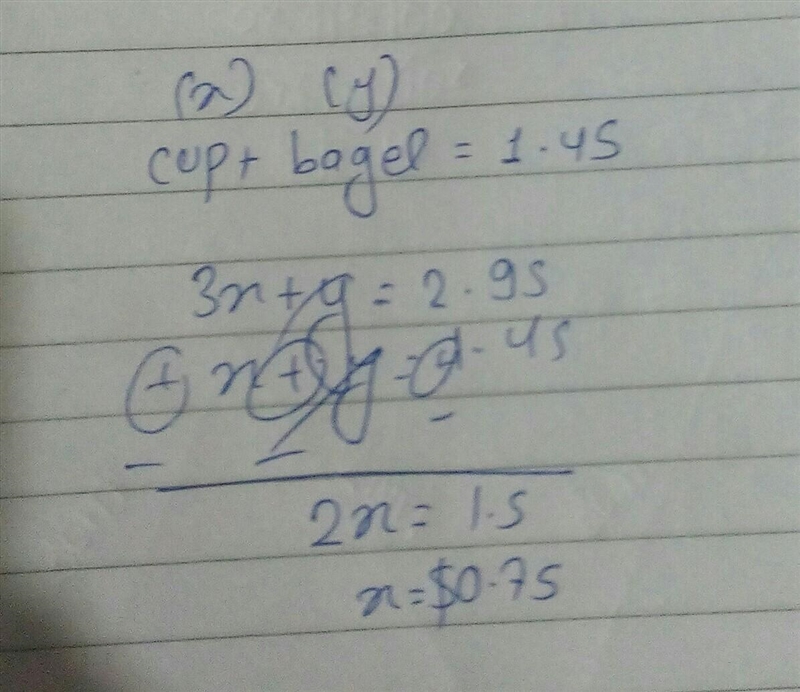 (x) (y)
cup + bagel = 1.45
3x + y = 2.95
+ x + y = 1.45
- - -
2x = 1.5
x = $0.75